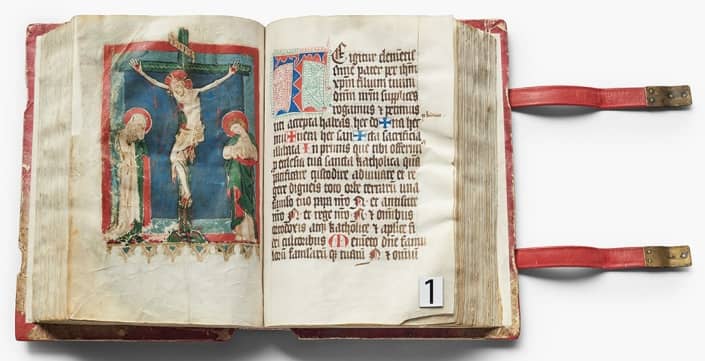 T E igitur clemētis
sime pater per ihm
xpm filium tuum
dnm nrm supplices
rogamus ⁊ petimus
uti accepta habeas hec do✠na hec
mu✠nera hec san✠cta sacrificia
illibata In primis que tibi offerim⁹
p ecclesia tua sancta katholica quā
pacificare custodire adunare et re
gere digneris toto orbe terrarū una
cū famulo tuo papa nr̄o N et antistite
nr̄o N et rege nr̄o N ⁊ omibus
orthodoxis atq katholice ⁊ aplice fi
dei cultoribus Memento dn̄e famu
lorū famularū q tuarū N ⁊ omniū
1